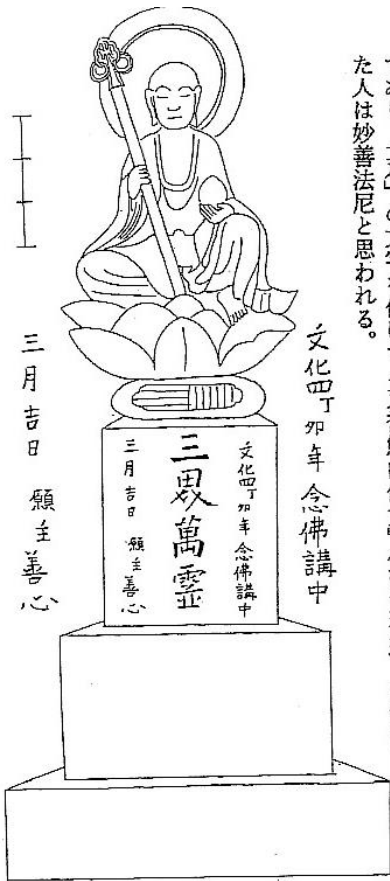 た人は妙善法尼と思われる。
文化四丁卯年 念佛講中
三月吉日 願主善心
文化四丁卯年 念佛講中
三界萬霊
三月吉日 願主善心